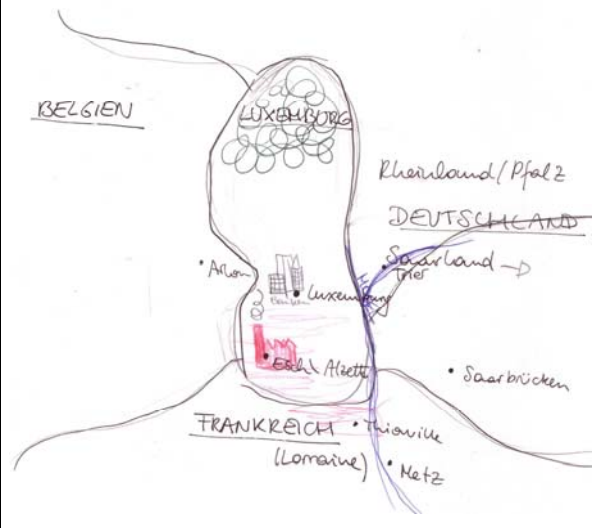 BELGIEN
LUXEMBURG
Rheinland/Pfalz
DEUTSCHLAND
Saarland
Trier
Arlon
Banken
Luxemburg
Esch/Alzette
Saarbrücken
FRANKREICH
Thionville
(Lorraine)
Metz